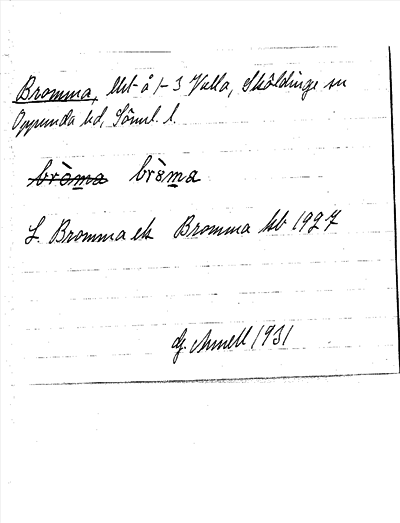 Bromma, lht å 1-3 Valla, Sköldinge sn
Oppunda hd, Söml. l.
bròma bròma
L. Bromma ek Bromma kb 1927
G. Arnell 1931